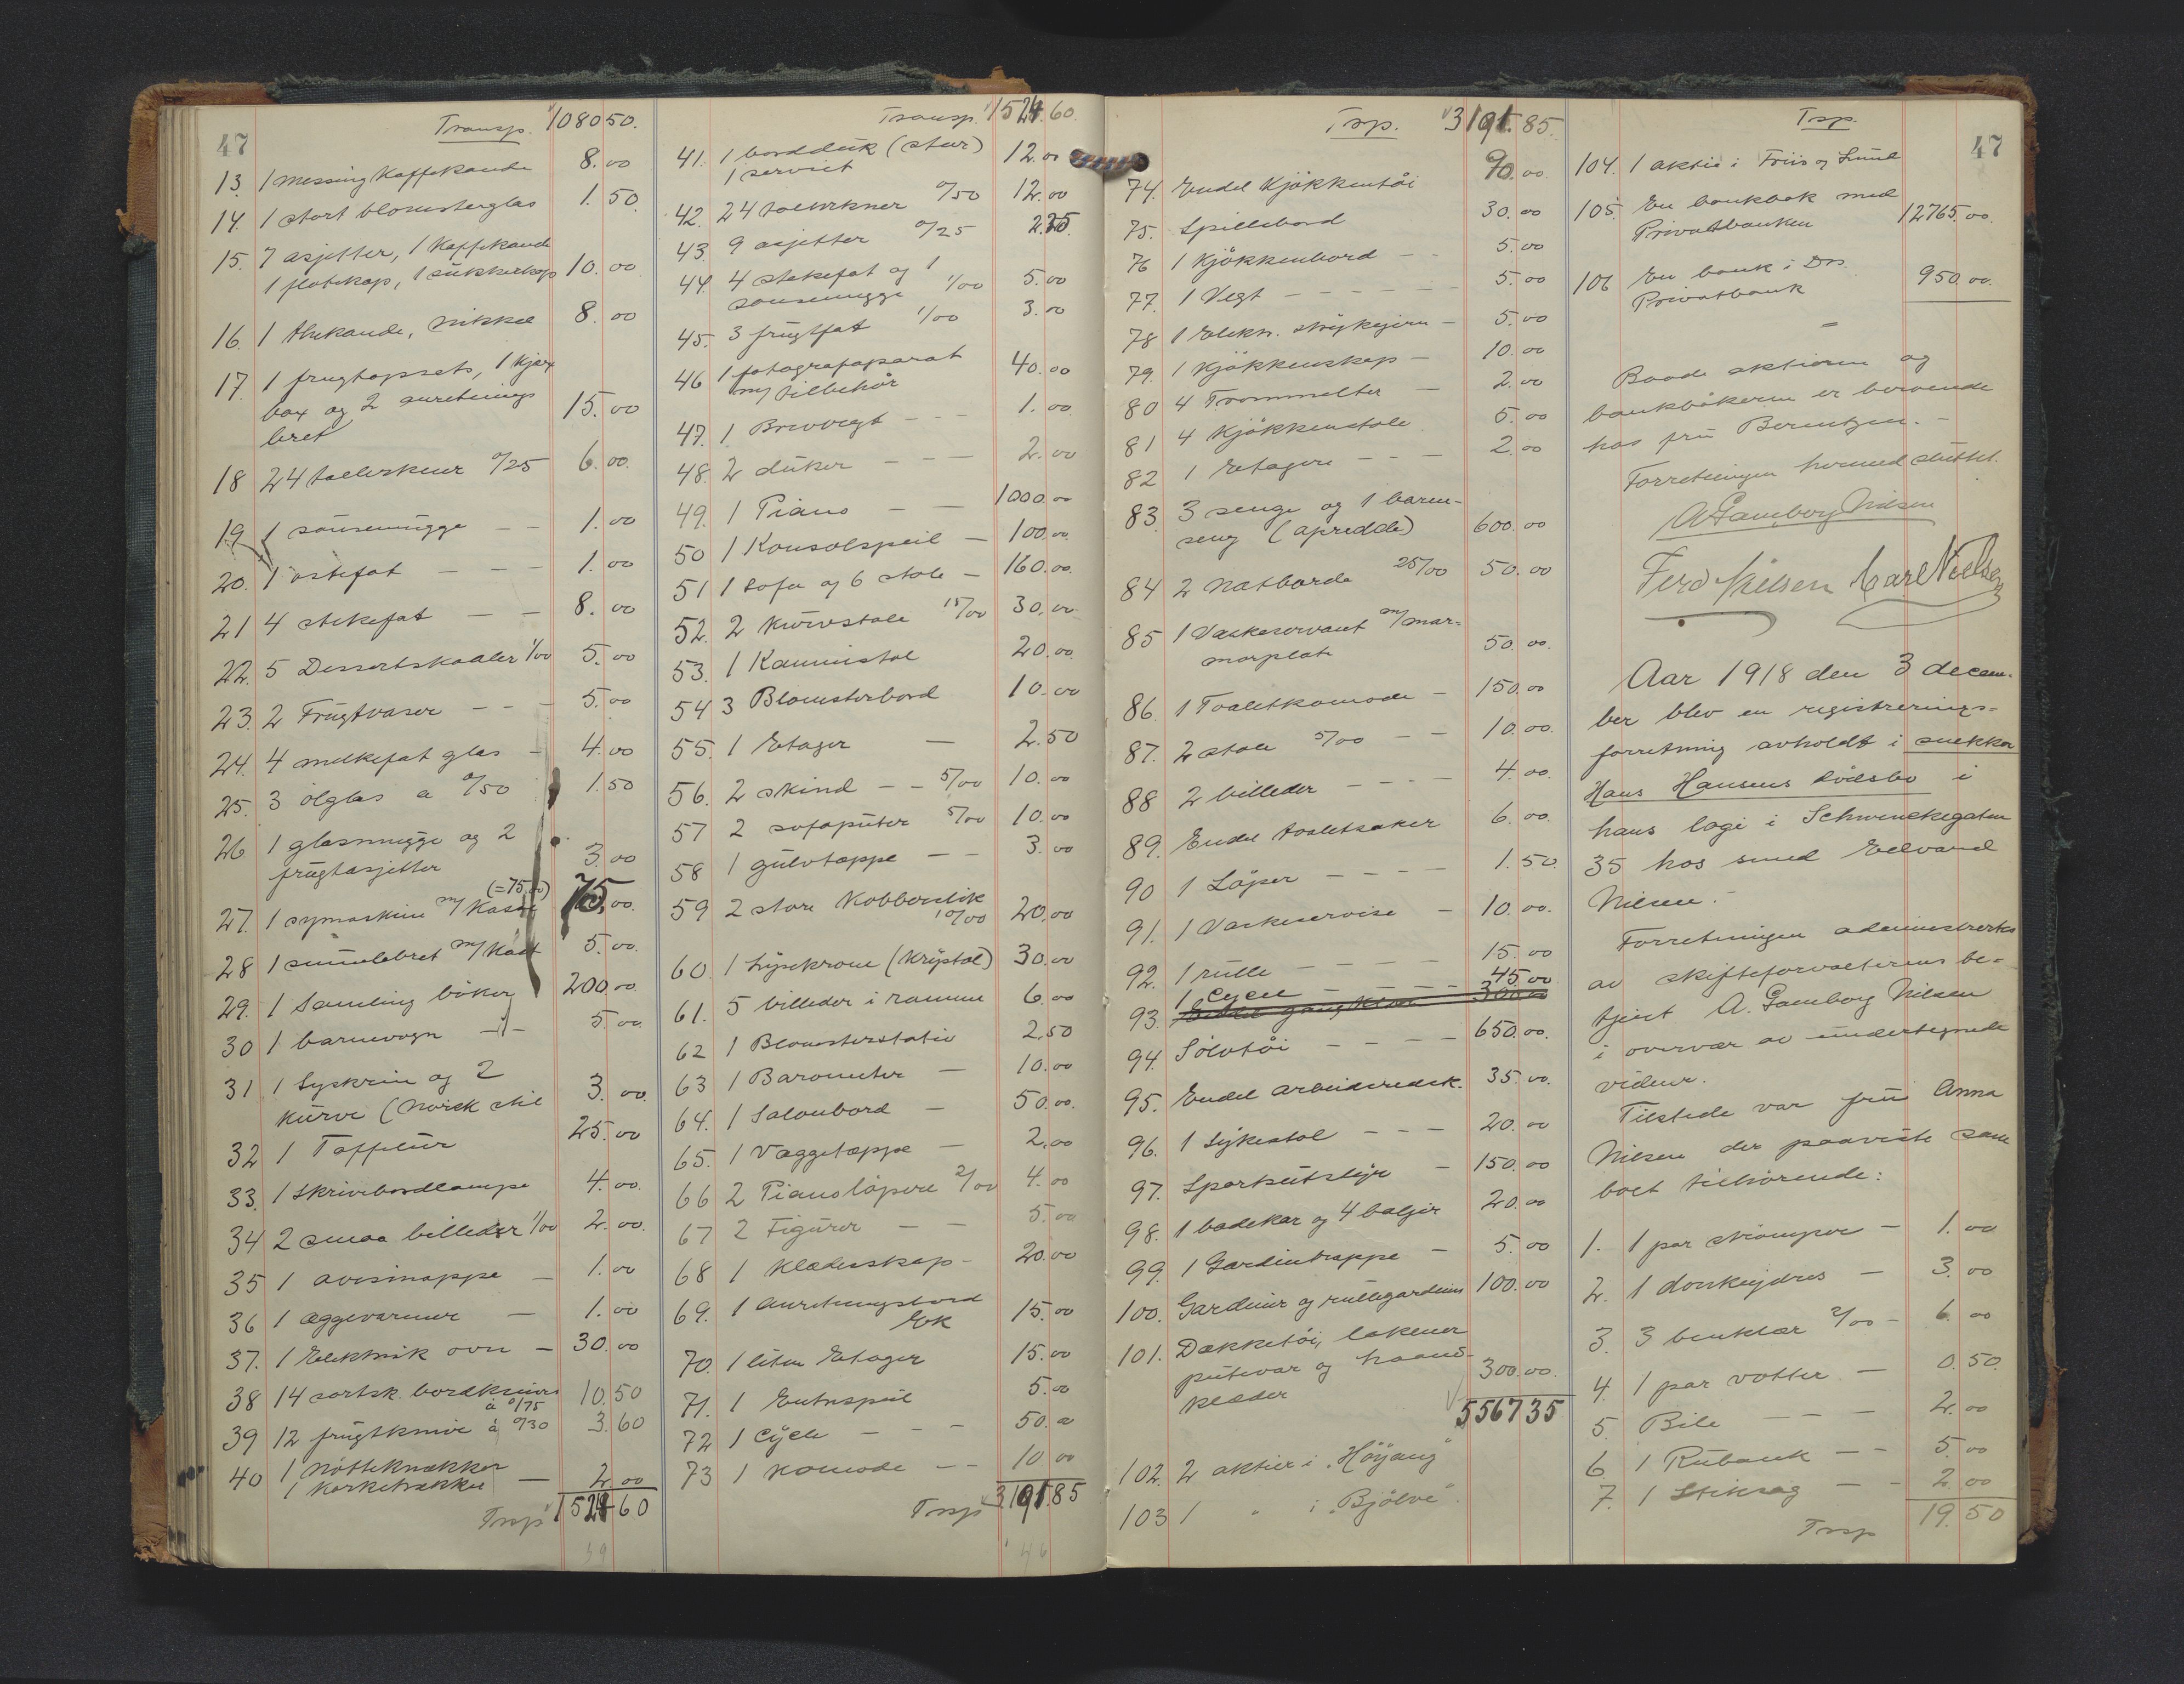 47
Transp. 1080 50.
13. 1 Messing Kaffekande 8.00
14. 1 stort blomsterglas 1.50.
15. 7 asjetter, 1 Kaffekande
1 flötekop, 1 sükkerkop 10.00
16. 1 thekande, nikkel 8.00
17. 1 frugtopsats, 1 kjæx
box og 2 anretnings
bret 15.00
18 24 tallerkner 0/25 6.00.
19 1 sausemügge - - 1.00
20. 1 ostefat - - - 1.00
21 4 stekefat - - 8.00
22. 5 Dessertskaaler 1/00 5.00
23. 2 Frügtvaser - - - 5.00
24. 4 melkefat glas - 4.00
25. 3 ölglas a 0/50 1.50
26 1 glasmugge og 2
frügtasjetter 3.00
(=75,00)
27. 1 symaskin m/ Kasse 75.00.
28 1 smulebret m/ Kost 5.00.
29. 1 Samling böker 200.00.
30 1 barnevogn - - 5.00.
31 1 Syskrin og 2
Kürve (norsk stil 3.00.
32 1 Taffelür 25.00
33. 1 Skrivebordlampe 4.00.
34 2 smaa billeder 1/00 2.00.
35 1 avismappe - 1.00
36 1 æggevarmer - 1.00
37. 1 Elektrisk ovn - 30.00
38 14 sortsk. bordkniver
à 0/75 10.50
39 12 frügtknive à 0/30 3.60
40 1 Nötteknækker
1 Korketrækker - 2.00
Trsp 1524 60
Transp. 1524.60.
41. 1 borddük (stor)
1 serviet 12.00
42. 24 tallerkner 0/50 12.00
43. 9 asjetter 0/25 2.25.
44. 4 stekefat og 1
sausemugge 1/00 5.00
45. 3 frügtfat 1/00 3.00
46 1 fotografaparat
m/ tilbehör 40.00
47. 1 Brevvegt - - - 1.00.
48. 2 düker - - - 2.00
49. 1 Piano - - 1000.00
50 1 Konsolspeil - 100.00.
51 1 Sofa og 6 stole - 160.00.
52. 2 Kürvstole 15/00 30.00
53. 1 Kaminstol 20.00.
54 3 Blomsterbord 10.00
55. 1 Etager - 2.50
56. 2 skind - - 5/00 10.00
57 2 sofapüter 5/00 10.00
58 1 gülvtæppe - - 3.00
59 2 store Kobberstik
10/00 20.00
60. 1 Lysekrone (Krystal) 30.00
61. 5 billeder i ramme 6.00
62 1 Blomsterstativ 2.50
63 1 Barometer - 10.00
64. 1 Salonbord - 50.00.
65. 1 Væggetæppe - 2.00
66 2 Pianolöpere 2/00 4.00
67 2 Figürer - - 5.00
68 1 Klædesskap - 20.00
69. 1 Anretningsbord
Ek 15.00
70. 1 liten Etager 15.00
71. 1 Entrespeil 5.00
72 1 Cycle - - 50.00
73 1 Komode - - 10.00
Trsp 3191.85
Trsp. 3191.85.
74. Endel Kjökkentöi 90.00.
75. Spillebord 30.00
76 1 Kjökkenbord - - 5.00
77. 1 Vegt - - - - - 5.00
78 1 Elektr. strykejern - 5.00
79. 1 Kjökkenskap - 10.00
80 4 Trommelter - 2.00
81 4 Kjökkenstole 5.00
82 1 Etagere - - - 2.00
83. 3 senge og 1 barne-
seng (opredde) 600.00
84 2 Natborde 25/00 50.00
85 1 Vaskeservant m/mar-
morplate 50.00.
86. 1 Toaletkomode - 150.00
87. 2 stole 5/00 - - 10.00.
88 2 billeder - - - 4.00.
89. Endel toaletsaker 6.00.
90 1 Löper - - - - 1.50.
91. 1 Vaskeservise - 10.00.
92. 1 rülle - - - - 15.00
1 Cycle - - - - 45.00
93. Endel gangklær 300.00
94. Sölvtöi - - - - 650.00.
95. Endel arbeidsredsk. 35.00.
96. 1 Sykestol - - - 20.00
97. Sportsütstyr - 150.00
98. 1 badekar og 4 baljer 20.00
99. 1 Gardintrappe - 5.00
100. Gardiner og rüllegardiner 100.00
101. Dækketöi, lakener
pütevar og haand-
klæder 300.00.
5567 35
102. 2 aktier i „Höyang"
103 1 " i „Bjölvo".
Trsp. 47
104. 1 aktie i Friis og Lund
105. En bankbok med
Privatbanken 12765.00.
106 En bank i Drs.
Privatbank 950.00.
-
Baade aktierne og
bankbökerne er beroende
hos frü Berentzen. -
Forretningen hermed slüttet.
A Gamborg Nilsen
Ferd Nielsen Carl Nielsen
Aar 1918 den 3 decem-
ber blev en registrerings-
forretning avholdt i snekker
Hans Hansens dödsbo i
hans logi i Schwenckegaten
35 hos smed Edvard
Nilsen.
Forretningen administrertes
av skifteforvalterens be-
tjent A. Gamborg Nilsen
i overvær av undertegnede
vidner.
Tilstede var frü Anna
Nilsen der paaviste som
boet tilhörende:
1. 1 par strömper - 1.00
2. 1 donkeydres - 3.00
3. 3 benklær 2/00 - 6.00
4. 1 par votter - 0.50.
5. Bile - - - 2.00
6. 1 Rübank - - 5.00
7. 1 Stiksag - - 2.00
Trsp 19.50